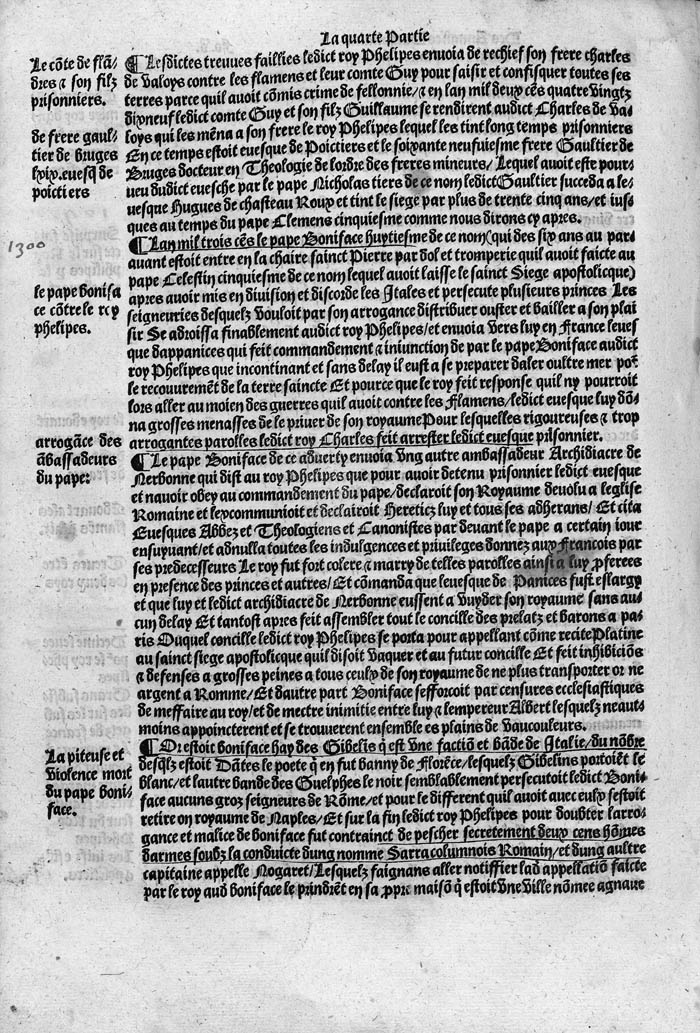 La quarte Partie
Le cōte de flā-
dres & son filz
prisonniers.
¶ Lesdictes treuues faillies ledict roy Phelipes enuoia de rechief son frere charles
de valoys contre les flamens et leur comte Guy pour saisir et confisquer toutes ses
terres parce quil auoit cōmis crime de fellonnie/& en lan mil deux cēs quatre vingtz
dixneuf ledict comte Guy et son filz Guillaume se rendirent audict Charles de va-
loys qui les mēna a son frere le roy Phelipes lequel les tint long temps prisonniers
de frere gaul-
tier de bruges
lxix.euesq̄ de
poictiers
En ce temps estoit euesque de Poictiers et le soixante neufuiesme frere Gaultier de
Bruges docteur en Theologie de lordre des freres mineurs/Lequel auoit este pour-
ueu dudict euesche par le pape Nicholas tiers de ce nom ledictGaultier succeda a le-
uesque Hugues de chasteau Roux et tint le siege par plus de trente cinq ans/et ius-
ques au temps du pape Clemens cinquiesme comme nous dirons cy apres.
1300
¶ Lan mil trois cēs le pape Boniface huytiesme de ce nom(qui des six ans au par-
auant estoit entre en la chaire sainct Pierre par dol et tromperie quil auoit faicte au
pape Celestin cinquiesme de ce nom lequel auoit laisse le sainct Siege apostolicque)
le pape bonifa
ce cōtre le roy
phelipes.
apres auoir mis en diuision et discorde les Itales et persecute plusieurs princes Les
seigneuries desquelz vouloit par son arrogance distribuer ouster et bailler a son plai
sir Se adroissa finablement audict roy Phelipes/et enuoia vers luy en France leues
que dappanices qui feit commandement & iniunction de par le pape Boniface audict
roy Phelipes que incontinant et sans delay il eust a se preparer daler oultre mer pot̄
le recouurement de la terre saincte Et pource que le roy feit response quil ny pourroit
lors aller au moien des guerres quil auoit contre les Flamens/ledict euesque luy dō-
na grosses menasses de le priuer de son royaumePour lesquelles rigoureuses & trop
arrogāce des
ābassadeurs
du pape:
arrogantes parolles ledict roy Charles feit arrester ledict euesque prisonnier.
¶ Le pape Boniface de ce aduerty enuoia vng autre ambassadeur Archidiacre de
Nerbonne qui dist au roy Phelipes que pour auoir detenu prisonnier ledict euesque
et nauoir obey au commandement du pape/declaroit son Royaume deuolu a leglise
Romaine et lexcommunioit et declairoit Hereticz luy et tous ses adherans/Et cita
Euesques Abbez et Theologiens et Canonistes par deuant le pape a certain iour
ensuyuant/et adnulla toutes les indulgences et priuileges donnez aux Francois par
ses predecesseurs Le roy fut fort colere & marry de telles parolles ainsi a luy p̄ferees
en presence des princes et autres/Et cōmanda que leuesque de Panices fust eslargy
et que luy et ledict archidiacre de Nerbonne eussent a vuyder son royaume sans au-
cun delay Et tantost apres feit assembler tout le concille des prelatz et barons a pa-
ris Ouquel concille ledict roy Phelipes se porta pour appellant cōme recitePlatine
au sainct siege apostolicque quil disoit vaquer et au futur concille Et feit inhibiciōs
& defenses a grosses peines a tous ceulx de son royaume de ne plus transporter or ne
argent a Romme/Et dautre part Boniface sefforcoit par censures ecclesiastiques
de meffaire au roy/et de mectre inimitie entre luy & lempereur Albert lesquelz neaut-
moins appoincterent et se trouuerent ensemble es plains de vaucouleurs.
La piteuse et
violence mort
du pape boni-
face.
¶ Or estoit boniface hay des Gibelis q̄ est vne factiō et bāde de Italie/du nōbre
desq̄lz estoit Dātes le poete q̄ en fut banny de Florēce/lesquelz Gibelins portoiēt le
blanc/et lautre bande des Guelphes le noir semblablement persecutoit ledict Boni-
face aucuns groz seigneurs de Rōme/et pour le different quil auoit auec eulx sestoit
retire on royaume de Naples/Et sur la fin ledict roy Phelipes pour doubter larro-
gance et malice de boniface fut contrainct de pescher secretement deux cens hōmes
darmes soubz la conduicte dung nomme Sarra columnois Romain/et dung aultre
capitaine appelle Nogaret/Lesquelz faignans aller notiffier lad appellatiō faicte
par le roy aud boniface le prindrēt en sa ppr̄e maisō q̄ estoit vne ville nōmee agnaue